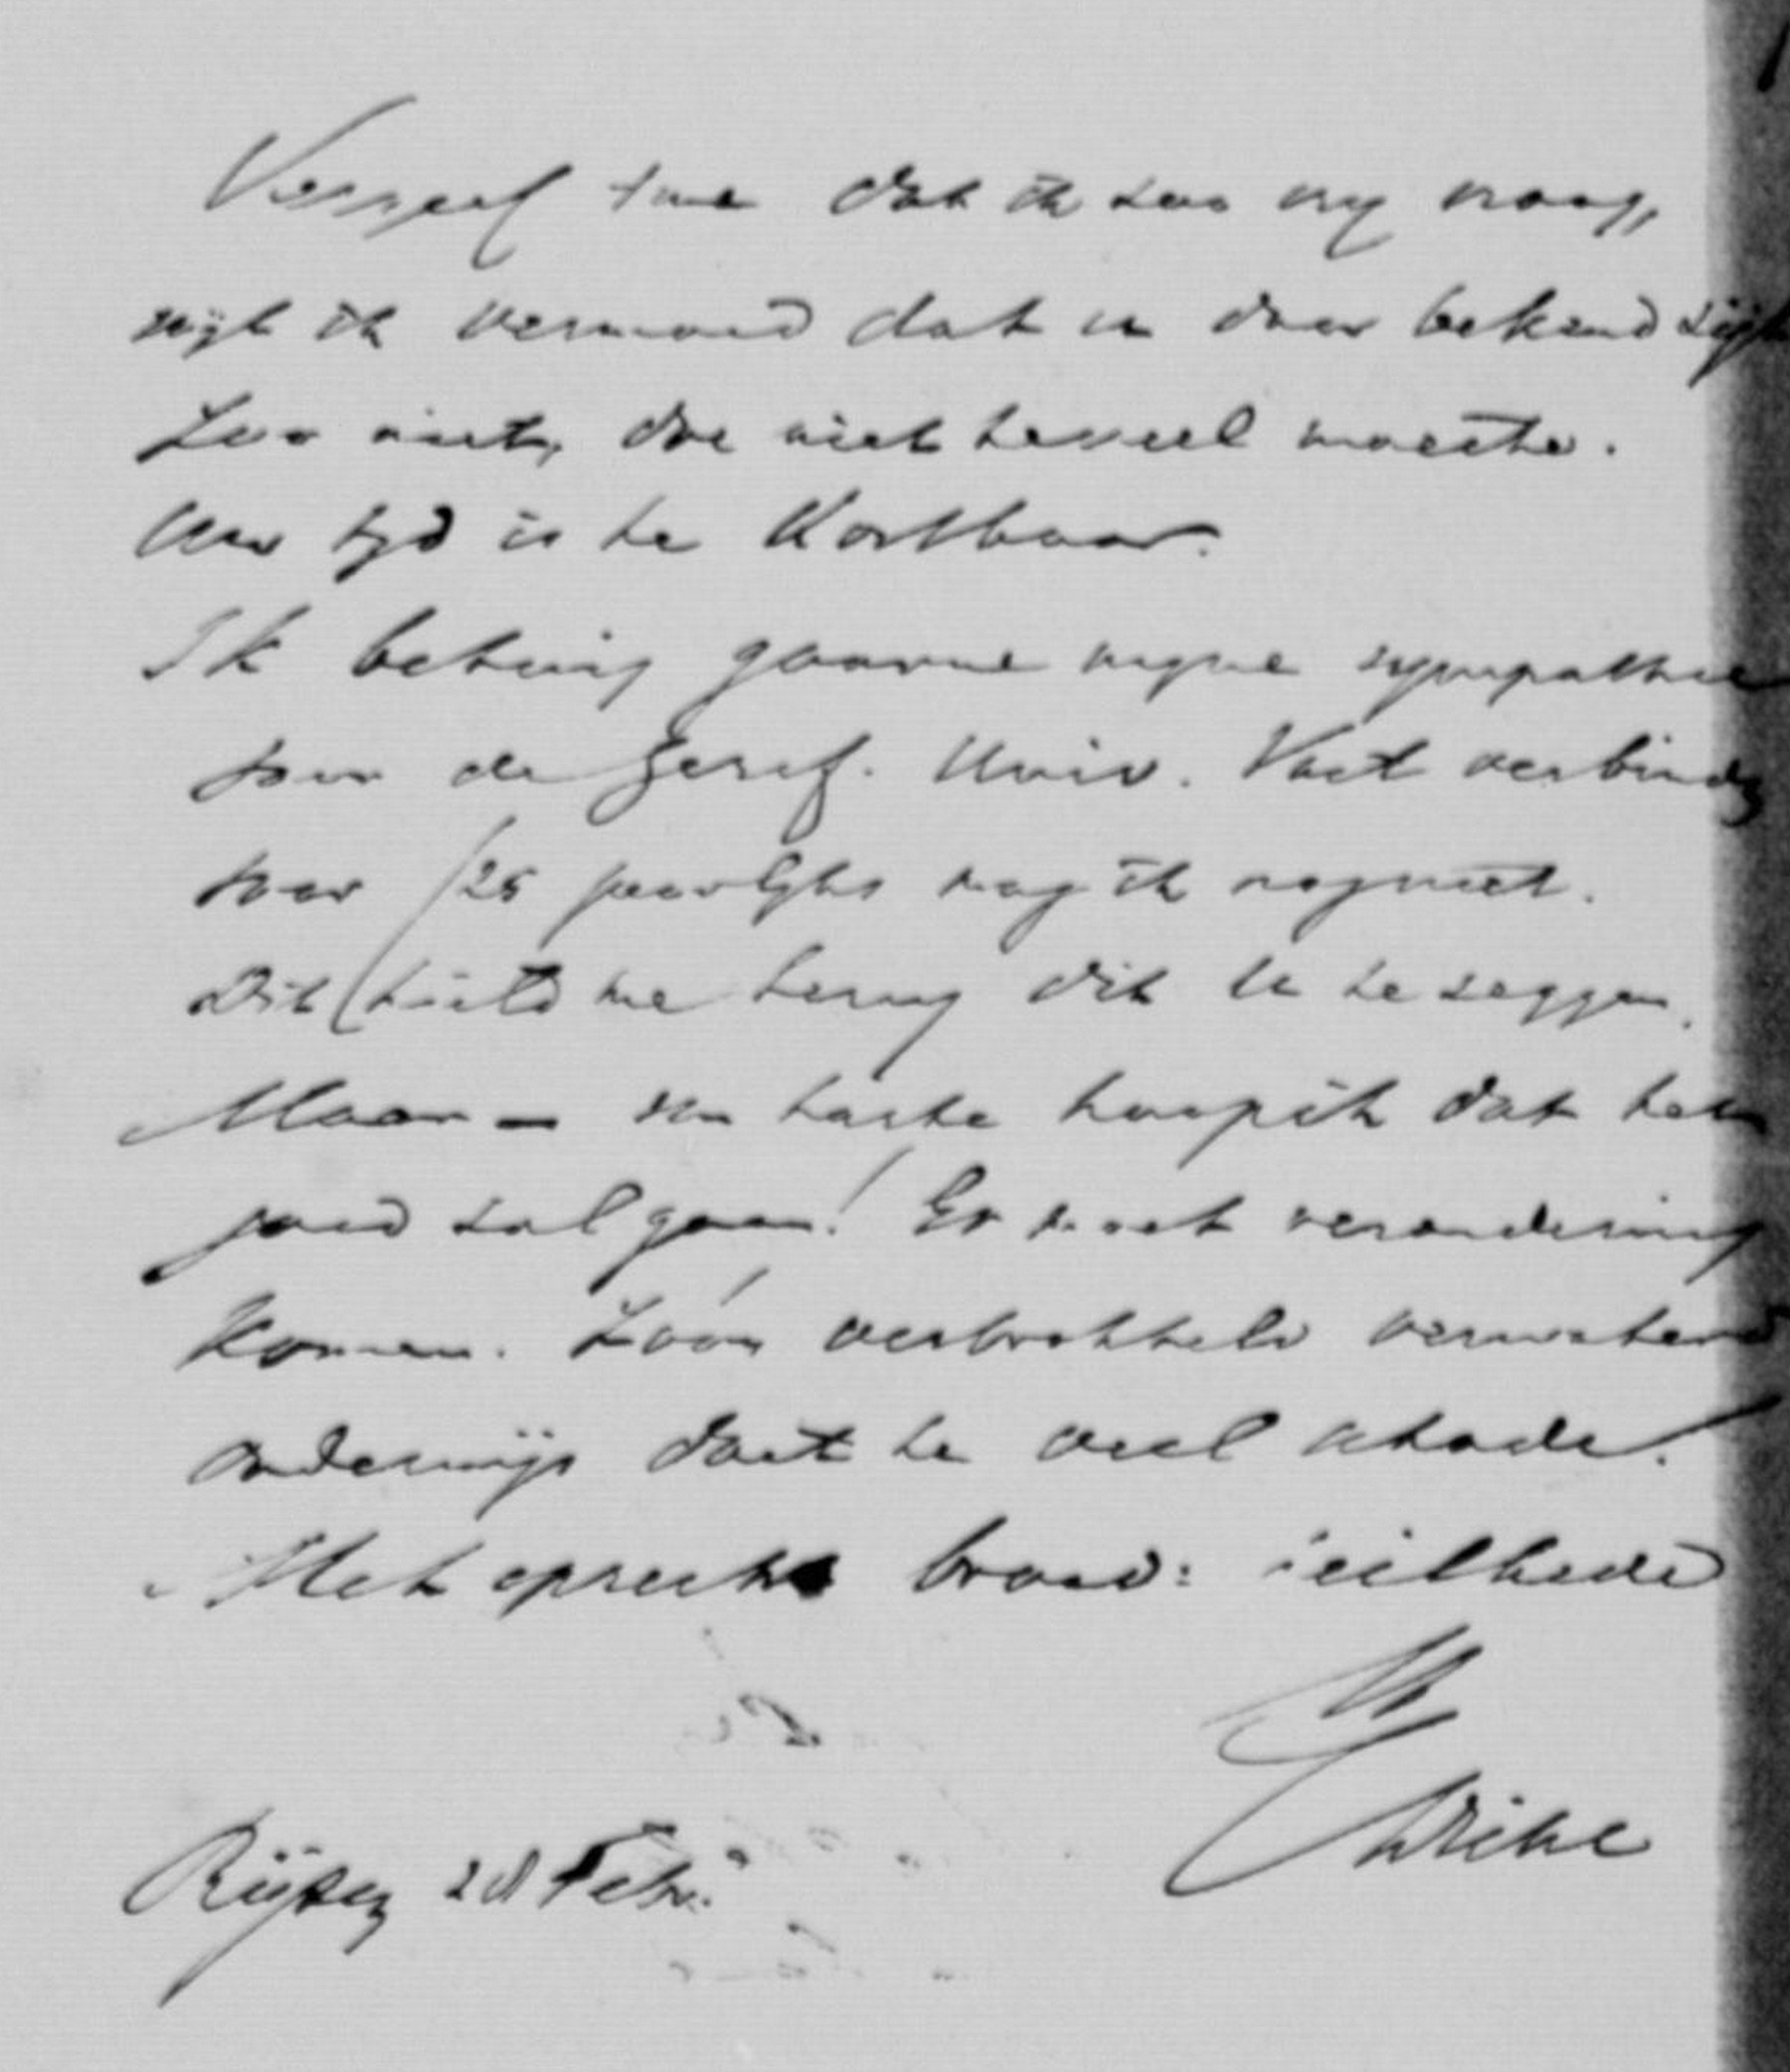 Vergeef me dat ik zoo vry vraag,
wyl ik vermoed dat u daar bekend zijt
Zoo niet, doe niet te veel moeite.
Uw tyd is te kostbaar.
Ik betuig gaarne myne sympathie
voor de Geref. Univ. Vast verbinden
voor f 25 jaarlyks mag ik nog niet.
Dit hield me terug dit U te zeggen.
Maar – van harte hoop ik dat het
goed zal gaan! Er moet verandering
komen. Zóó'n verbrokkeld verwaterd
onderwijs doet te veel schade.
Met oprechte broed: heilbede
Rijssen 28 Febr.